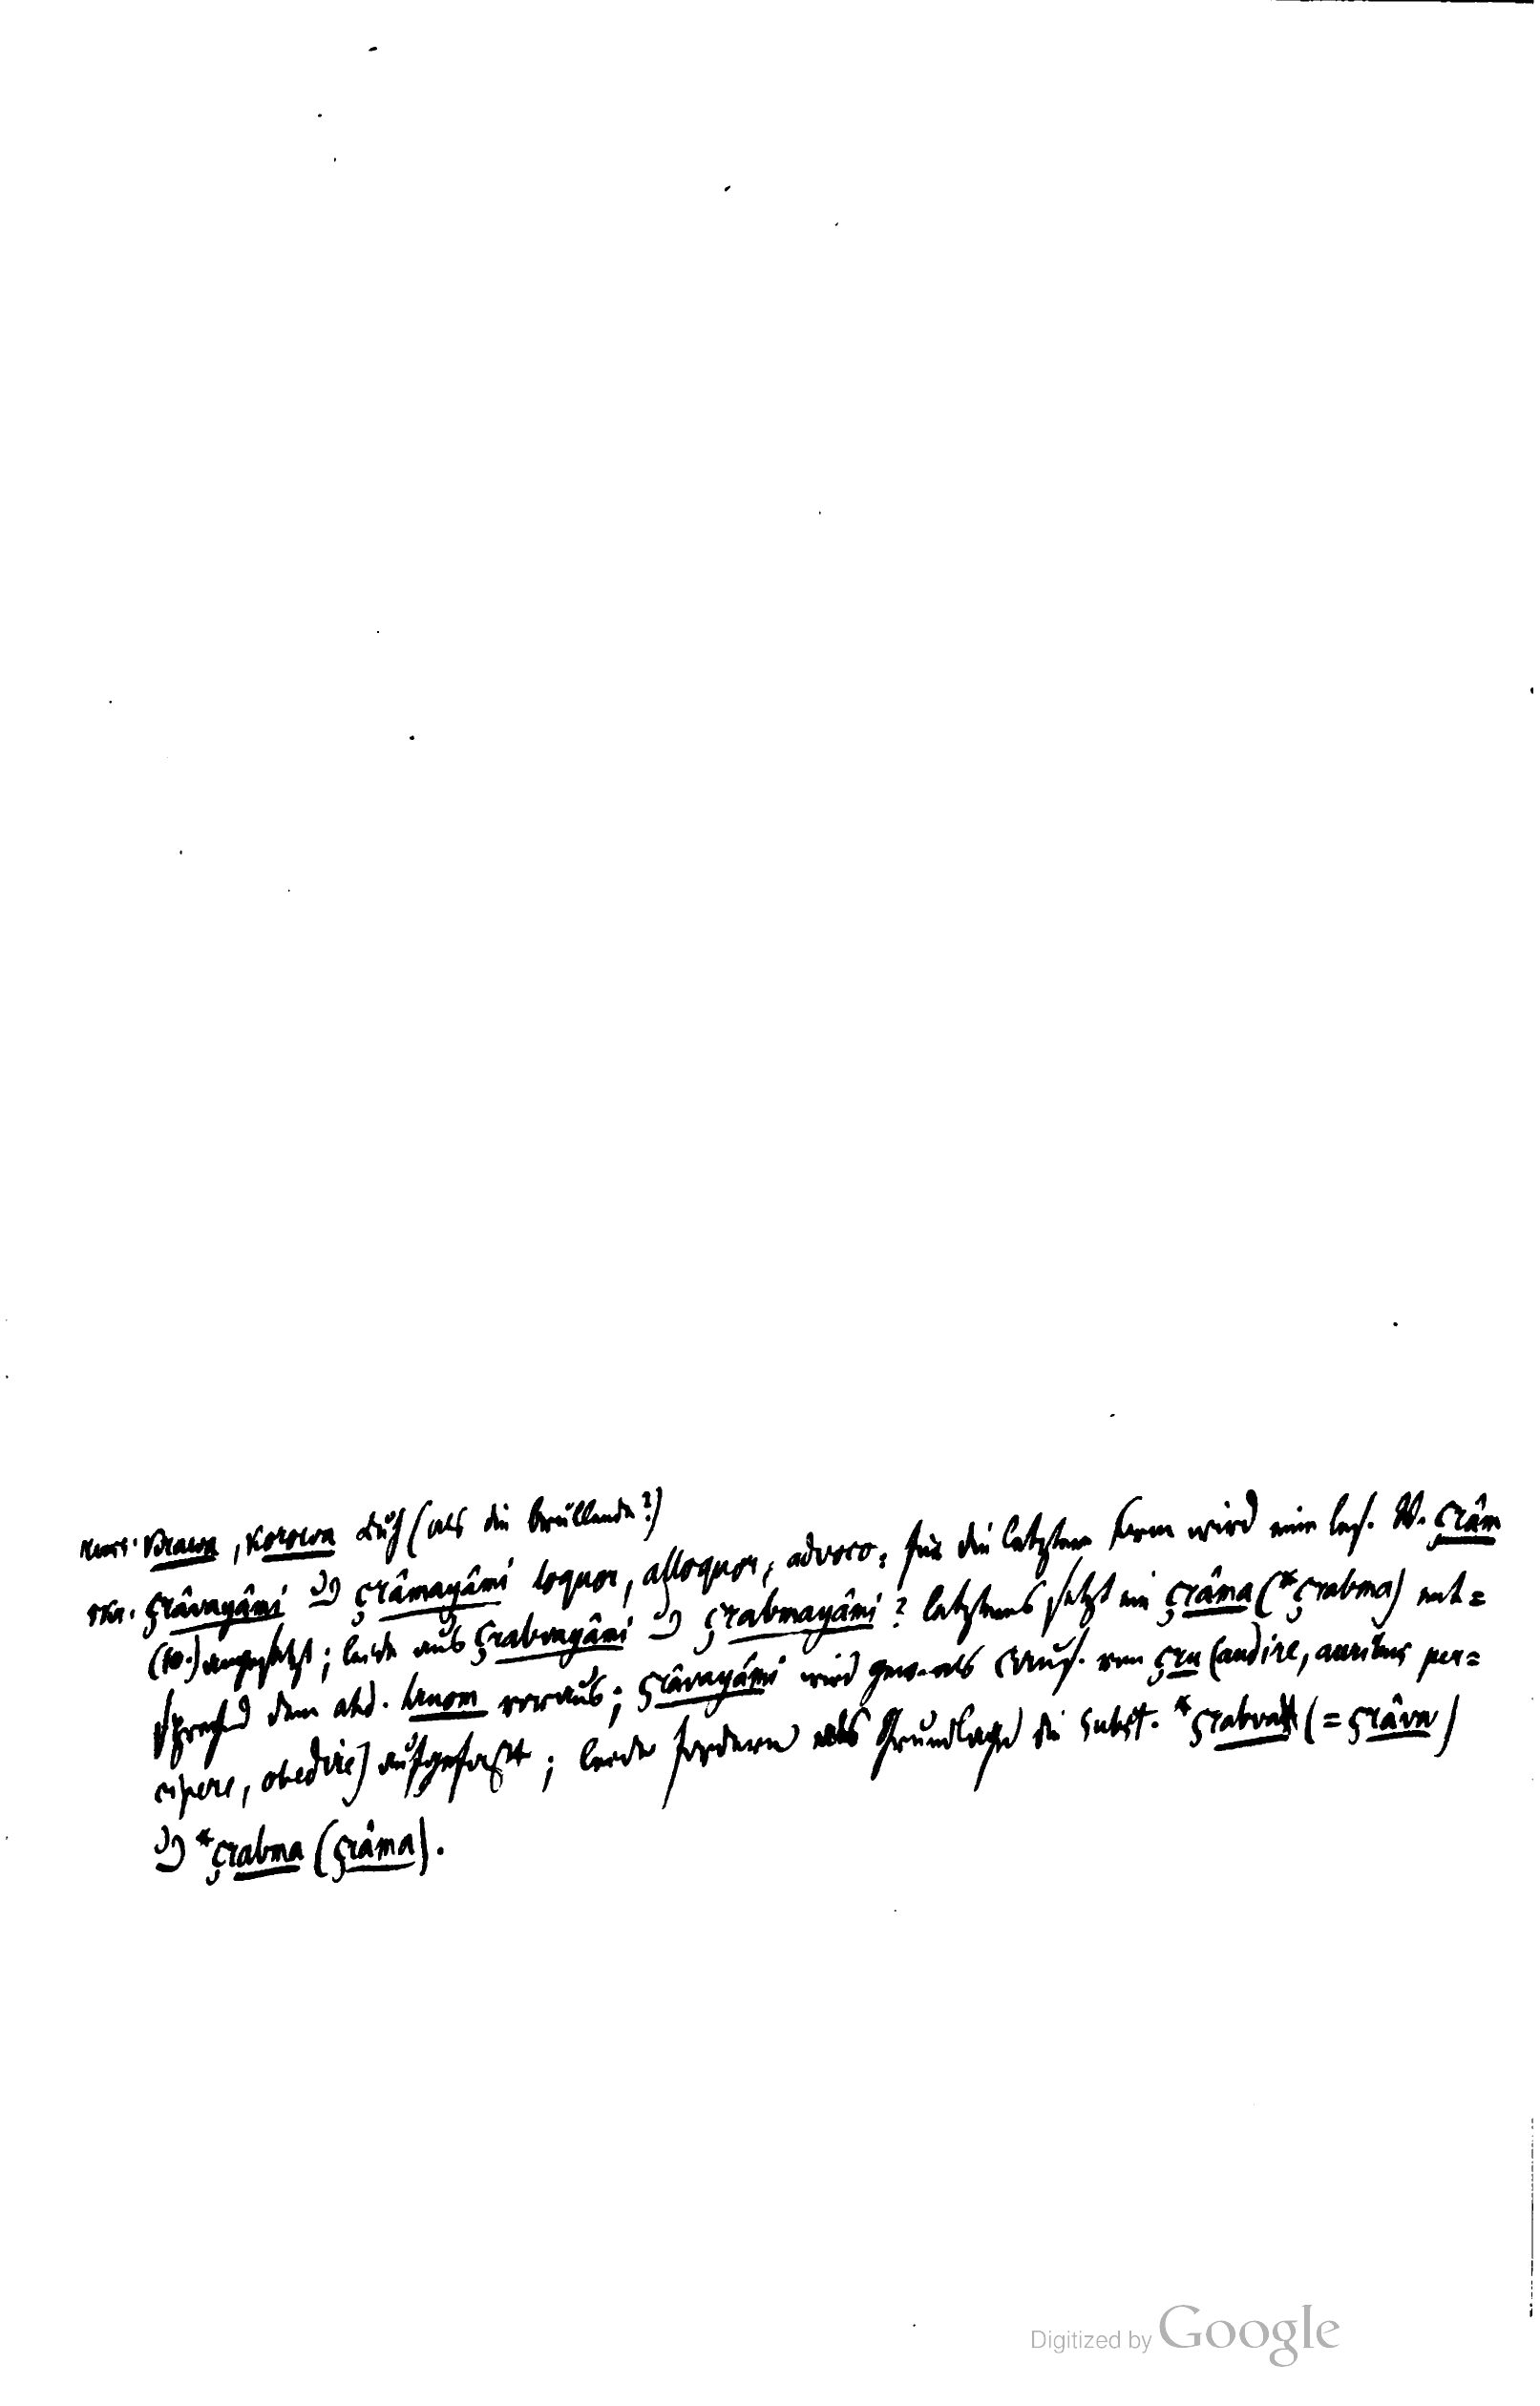 Krawa, korowa Kuh (als die brüllende?)
skr. çrâvayâmi u. çrâmayâmi loquor, alloquor, advoco; für die letztere Form wird eine bes. W. çrâm
(10.) angesetzt; beide aus çrabvayâmi u. çrabmayâmi? letzteres setzt ein çrâma (*çrabma) ent=
sprechend dem ahd. voraus; çrâvayâmi wird gew. als Caus. von çru (audire, auribus per=
cipere, obedire) aufgefaßt; beide fordern als Grundlage die Subst. *çrabva (= çrâva)
u. *çrabma (çrâma).
Digitized by Google